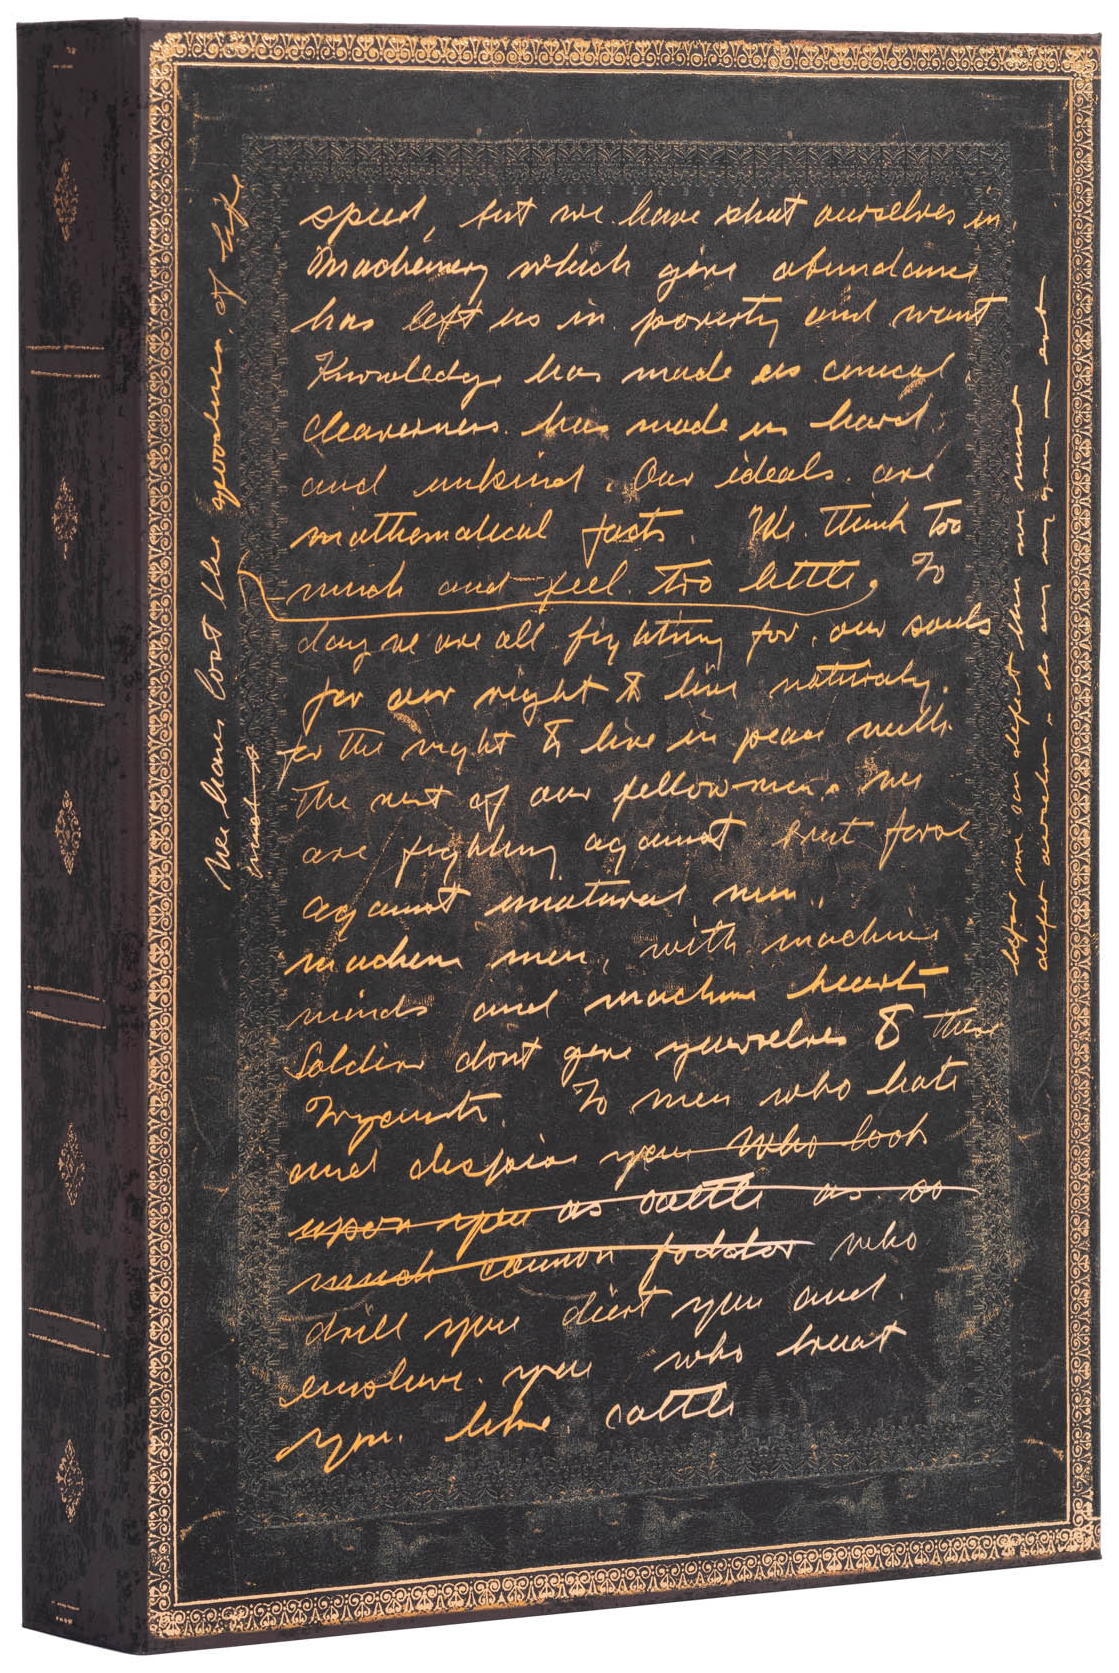 speed, but we have shut ourselves in.
Machinery which give abundance
has left us in poverty and want
Knowledge has made us cinical
cleaverness has made us hard
and unkind. Our ideals are
mathematical facts. We think too
much and feel too little. To
day we are all fighting for our souls
for our right to live naturaly.
for the right to live in peace with
the rest of our fellow-men. We
are fighting against brut force
against unatural men.
machine men, with machine
minds and machine heart
Soldiers dont give yourselves to these
To men who hate
and despise you who look
upon you as cattle as so
much cannon fodder who
drill you diert you and
enslave you who treat
you like cattle
We have lost the goodness of life
before we can defeat him we must